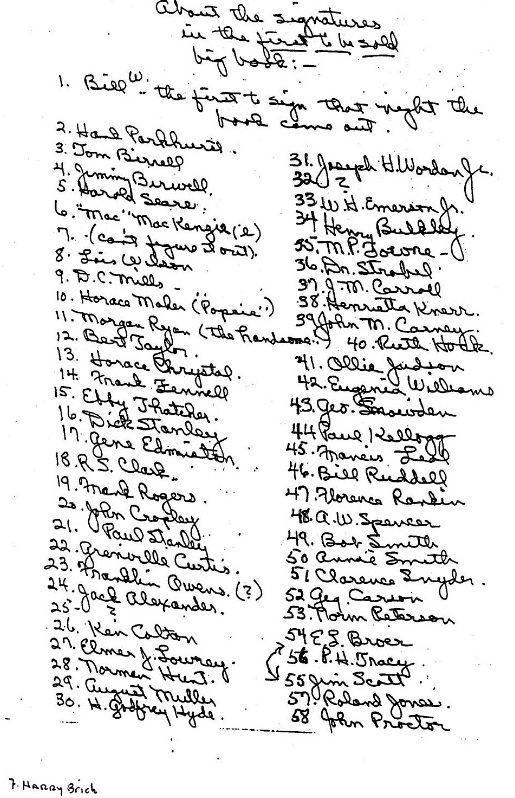 About the signatures
in the first to be sold
big book:—
1. Bill W. - the first to sign that night the
book came out.
2. Hank Parkhurst.
3. Tom Birrell
4. Jimmy Burwell.
5. Harold Sears.
6. "Mac" MacKenzie (?)
7. (can't figure it out).
8. Lois Wilson
9. D.C. Mills -
10. Horace Maher ("Popeie")
11. Morgan Ryan (The handsome)
12. Bert Taylor.
13. Horace Chrystal.
14. Frank Fennell
15. Ebby Thatcher.
16. Dick Stanley
17. Gene Edmiston
18. R.S. Clark.
19. Frank Rogers.
20. John Cropley
21. Paul Stanley
22. Grenville Curtis.
23. Franklin Owens. (?)
24. Jack Alexander.
25- ?
26. Ken Colton
27. Elmer J. Lowrey.
28. Norman Hunt.
29. August Muller
30. H. Godfrey Hyde.
31. Joseph H. Wordan Jr.
32 ?
33 W.H. Emerson Jr.
34 Henry Bulkley
35. M.P. Towne -
36. Dr. Strobel
37 J.M. Carroll
38. Henrietta Knerr.
39 John M. Carney.
40. Ruth Hock.
41. Ollie Judson
42. Eugenia Williams
43. Geo. Snowden
44 Paul Kellogg
45. Francis
46. Bill Ruddell
47 Florence Rankin
48. A.W. Spencer
49. Bob Smith
50 Annie Smith
51 Clarence Snyder.
52 Geg Carson
53. Norm Peterson
54 E.L. Broer
56. P.H. Tracy
55 Jim Scott
57. Roland Jones.
58 John Proctor
7. HARRY Brick